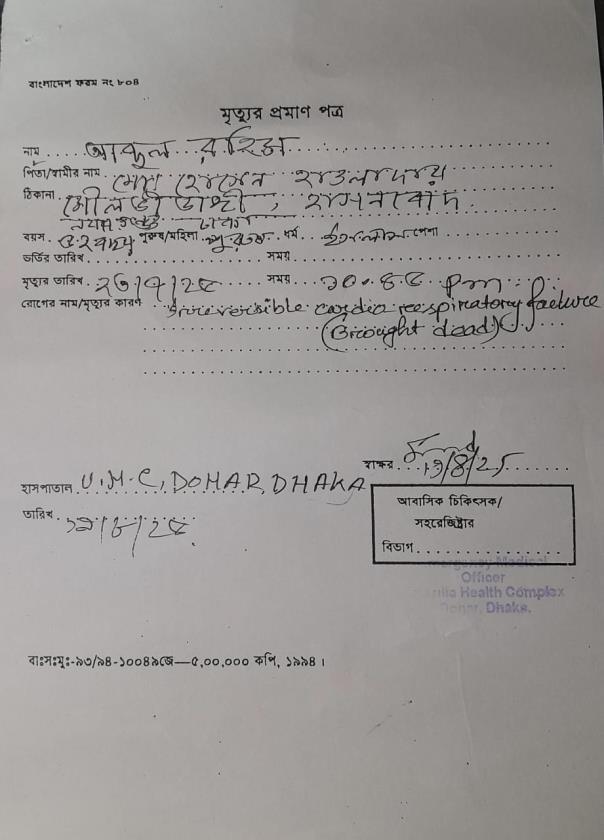 বাংলাদেশ ফরম নং ৮০৪
মৃত্যুর প্রমাণ পত্র
নাম আব্দুল রহিম
পিতা/স্বামীর নাম হোসেন হাওলাদার
ঠিকানা মৌলভীডাঙ্গী,
ঢাকা
বয়স পুরুষ/মহিলা পুরুষ ধর্ম ইসলাম পেশা
ভর্তির তারিখ সময়
মৃত্যুর তারিখ সময় ১০.৪৫ pm
রোগের নাম/মৃত্যুর কারণ Irreversible cardio respiratory failure
(Brought dead)
স্বাক্ষর 19/8/25
হাসপাতাল U.H.C, DOHAR, DHAKA
তারিখ ১৯/৮/২৫
আবাসিক চিকিৎসক/
সহরেজিষ্ট্রার
বিভাগ
Medical
Officer
Health Complex
Dohar, Dhaka.
বাঃসঃমুঃ-৯৩/৯৪-১০০৪৯জে—৫,০০,০০০ কপি, ১৯৯৪।